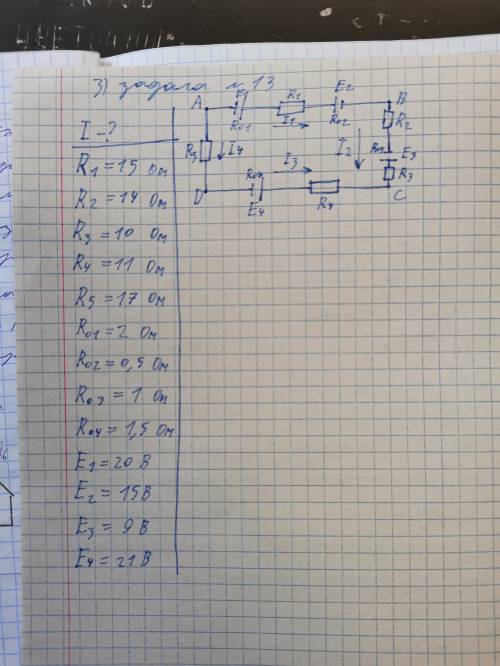 3) задача № 13
I - ?
R1 = 15 Ом
R2 = 14 Ом
R3 = 10 Ом
R4 = 11 Ом
R5 = 17 Ом
R01 = 2 Ом
R02 = 0,5 Ом
R03 = 1 Ом
R04 = 1,5 Ом
E1 = 20 В
E2 = 15 В
E3 = 9 В
E4 = 21 В
A E1 R1 E2 B
R01 I1 R02 R2
R5 I4 I2 R03 E3
I3 R3
D E4 R4 C